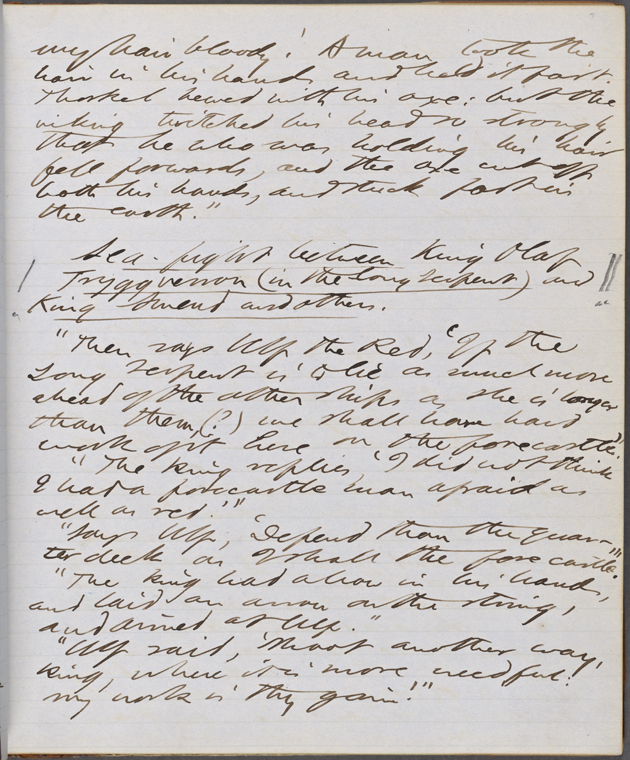 my hair bloody! A man took the
hair in his hands and held it fast.
Thorkel hewed with his axe: but the
viking twitched his head so strongly
that he who was holding his hair
fell forwards, and the axe cut off
both his hands, and stuck fast in
the earth."
Sea-fight between King Olaf
Tryggvesson (in the Long Serpent) and
King Svend and others.
"Then says Ulf the Red, 'If the
Long Serpent is to lie as much more
ahead of the other ships as she is longer
than them, (?) we shall have hard
work of it here on the forecastle.'
"The king replies, 'I did not think
I had a forecastle man afraid as
well as red.'"
"Says Ulf, 'Defend thou the quar-
ter deck as I shall the forecastle.'"
"The king had a bow in his hands,
and laid an arrow on the string,
and aimed at Ulf."
"Ulf said, 'Shoot another way,
king, where it is more needful:
my work is thy gain.'"